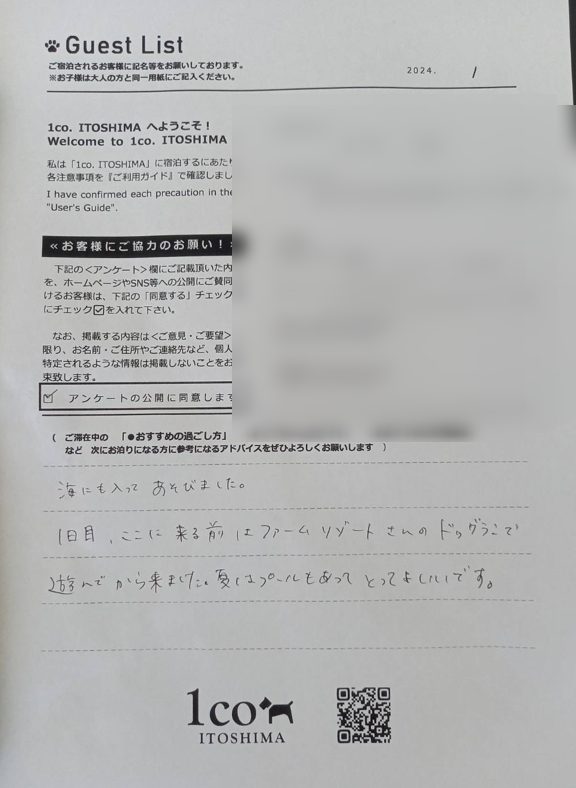 Guest List
ご宿泊されるお客様に記名等をお願いしております。
※お子様は大人の方と同一用紙にご記入ください。
2024. /
1co. ITOSHIMA へようこそ！
Welcome to 1co. ITOSHIMA
私は「1co. ITOSHIMA」に宿泊するにあた
各注意事項を『ご利用ガイド』で確認しまし
I have confirmed each precaution in the
"User's Guide".
≪お客様にご協力のお願い！
下記の＜アンケート＞欄にご記載頂いた内
を、ホームページやSNS等への公開にご賛同
けるお客様は、下記の「同意する」チェック
にチェック☑を入れて下さい。
なお、掲載する内容は＜ご意見・ご要望＞
限り、お名前・ご住所やご連絡先など、個人
特定されるような情報は掲載しないことをお
束致します。
☑ アンケートの公開に同意しま
( ご滞在中の 「●おすすめの過ごし方」
など 次にお泊りになる方に参考になるアドバイスをぜひよろしくお願いします )
海にも入って あそびました。
1日目、ここに 来る前 は ファーム リゾート さんの ドッグランで
遊んで から来ました。夏はプールもあって とってもいいです。
1co
ITOSHIMA